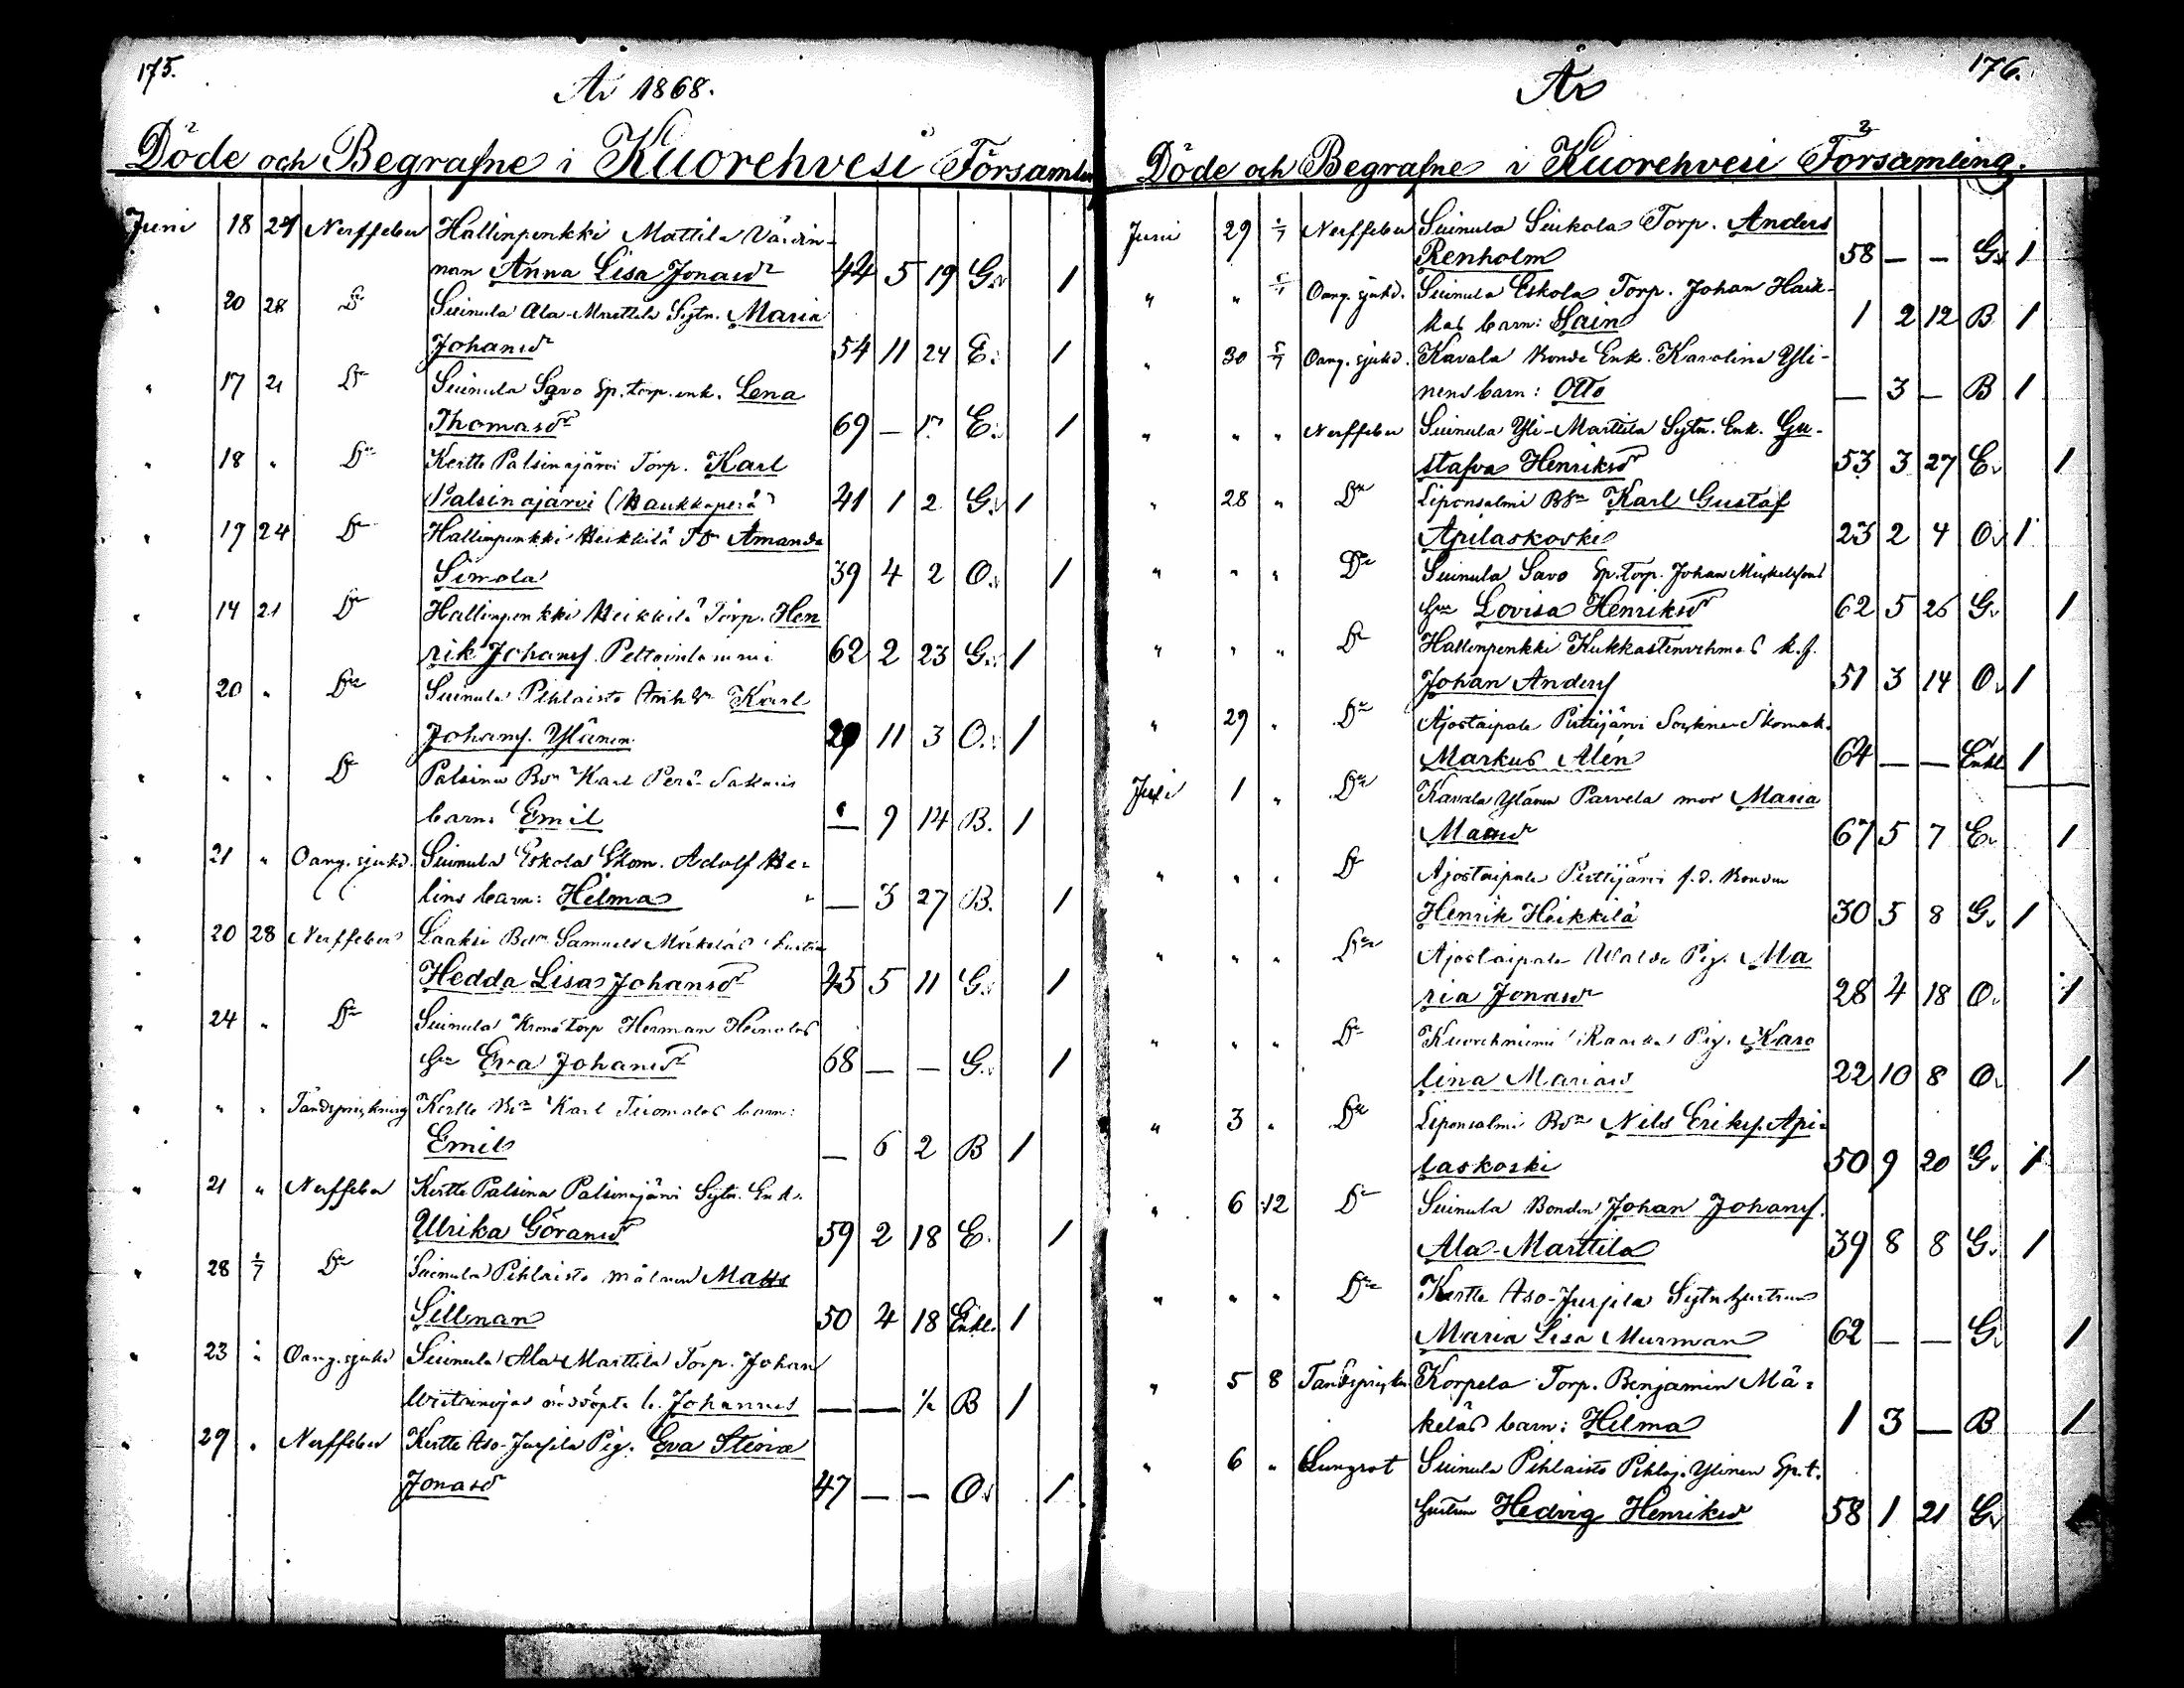 175.
År 1868.
Döde och Begrafne i Kuorehvesi Församlin
Juni 18 24 Nerffeber Hallinpenkki Mattila Värdin-
nan Anna Lisa Jonasdr 44 5 19 G. 1
" 20 28 Do Suinula Ala-Marttila Sytn. Maria
Johansdr 54 11 24 E. 1
" 17 21 Do Suinula Savo Sp. torp. enk. Lena
Thomasdr 69 — E. 1
" 18 " Do Kertte Palsinajärvi Torp. Karl
Palsinajärvi (Haukkaperä) 41 1 2 G. 1
" 19 24 Do Hallinpenkki Heikkilä Amanda
Simola 39 4 2 O. 1
" 14 21 Do Hallinpenkki Heikkilä Torp. Hen
rik Johansf. 62 2 23 G. 1
" 20 " Do Suinula Pihlaisto Karl
Johansf. Ylänen 29 11 3 O. 1
" " " Do Palsina Bdn Karl Perä-Sakaris
barn: Emil — 9 14 B. 1
" 21 " Oang. sjukd. Suinula Eskola Adolf He-
lins barn: Helma " — 3 27 B. 1
" 20 28 Nerffeber Laaksi Bdn Samuels Mäkeläs hustru
Hedda Lisa Johansdr 45 5 11 G. 1
" 24 " Do Suinula Krono torp Herman Heinolas
Hu Eva Johansdr 68 — — G. 1
" " " Tandsprickning Kertte Bdn Karl Tuomalas barn:
Emil — 6 2 B 1
" 21 " Nerffeber Kertte Palsina Palsinajärvi Sytn. Enk.
Ulrika Göransdr 59 2 18 E. 1
" 28 1/7 Do Suinula Pihlaisto målaren Matts
Sillman 50 4 18 Enkl. 1
" 23 " Oang. sjukd Suinula Ala-Marttila Torp. Johan
odöpta b. Johannes — — ½ B 1
" 29 " Nerffeber Kertte Aso-Jussila Pig. Eva Stina
Jonasd 47 — — O. 1
176.
År
Döde och Begrafne i Kuorehvesi Församling.
Juni 29 5/7 Nerffeber Suinula Siukola Torp. Anders
Renholm 58 — — G. 1
" " 5/7 Oang. sjukd. Suinula Eskola Torp. Johan Haik-
kas barn: 1 2 12 B 1
" 30 5/7 Oang. sjukd. Kavala Bonde Enk. Karolina Yli-
nens barn: Otto — 3 — B 1
" " " Nerffeber Suinula Yli-Marttila Sytn. Enk. Gu-
stafva Henriksdr 53 3 27 E. 1
" 28 " Do Liponsalmi Bdn Karl Gustaf
Apilaskoski 23 2 4 O. 1
" " " Do Suinula Savo Sp. torp. Johan Mickelsons
Hu Lovisa Henriksdr 62 5 26 G. 1
" " " Do Hallinpenkki
Johan Andersf 51 3 14 O. 1
" 29 " Do Ajostaipale Pirttijärvi Sockne-Skomak.
Markus Alén 64 — — Enkl 1
Juli 1 " Do Kavala Ylänen Parvela mor Maria
Mattsdr 67 5 7 E. 1
" " " Do Ajostaipale Pirttijärvi f.d. Bonden
Henrik Heikkilä 30 5 8 G. 1
" " " Do Ajostaipale Uotila Pig. Ma
ria Jonasdr 28 4 18 O. 1
" " " Do Kuorehniemi Pig. Karo
lina Mariasd 22 10 8 O. 1
" 3 " Do Liponsalmi Bdn Nils Eriksf. Api-
laskoski 50 9 20 G. 1
" 6 12 Do Suinula Bonden Johan Johansf.
Ala-Marttila 39 8 8 G. 1
" " " Do Kertte Aso-Jussila Sytn. hustrun
Maria Lisa Murman 62 — — G. 1
" 5 8 Tandsprickn. Korpela Torp. Benjamin Mä-
keläs barn: Helma 1 3 — B 1
" 6 " Lungsot Suinula Pihlaisto Pihlaj. Ylinen Sp. t.
hustrun Hedvig Henriksd 58 1 21 G